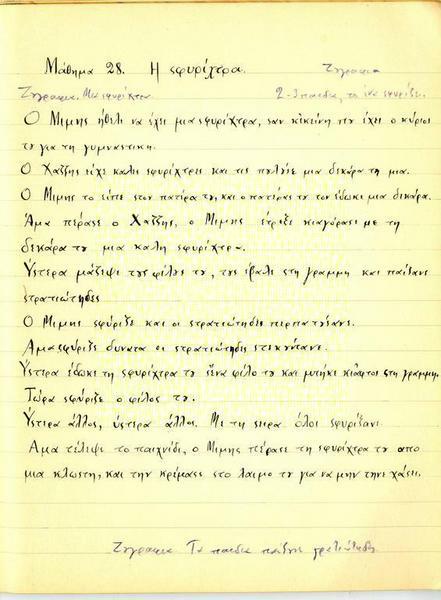 Μάθημα 28. Η σφυρίχτρα.
Ζωγραφια
Ζωγραφια. Μια σφυρίχτρα
2-3 παιδια, το ένα σφυρίζει.
Ο Μιμης ήθελε να έχει μια σφυρίχτρα, σαν κ' εκείνη που έχει ο κύριος
του για τη γυμναστικη.
Ο Χατζης είχε καλες σφυρίχτρες και τις πουλούσε μια δεκάρα τη μια.
Ο Μιμης το είπε στον πατέρα του, και ο πατέρας του τον έδωκε μια δεκάρα.
Άμα πέρασε ο Χατζης, ο Μιμης έτρεξε κι αγόρασε με τη
δεκάρα του μια καλη σφυρίχτρα.
Ύστερα μάζεψε τους φίλους του, τους έβαλε στη γραμμη και παίξανε
στρατιώτηδες
Ο Μιμης σφύριξε και οι στρατιώτηδες περπατούσανε.
Άμα σφύριξε δυνατα οι στρατιώτηδες στεκόντανε.
Ύστερα έδωκε τη σφυρίχτρα του σ' ένα φίλο του και μπήκε κι αυτος στη γραμμη.
Τώρα σφύριξε ο φίλος του.
Ύστερα άλλος, ύστερα άλλος. Με τη σειρα όλοι σφυρίξανε.
Άμα τέλειψε το παιχνίδι, ο Μιμης πέρασε τη σφυρίχτρα του απο
μια κλωστη, και την κρέμασε στο λαιμο του για να μην τηνε χάσει.
Ζωγραφια. Τα παιδια παίζουνε στρατιώτηδες